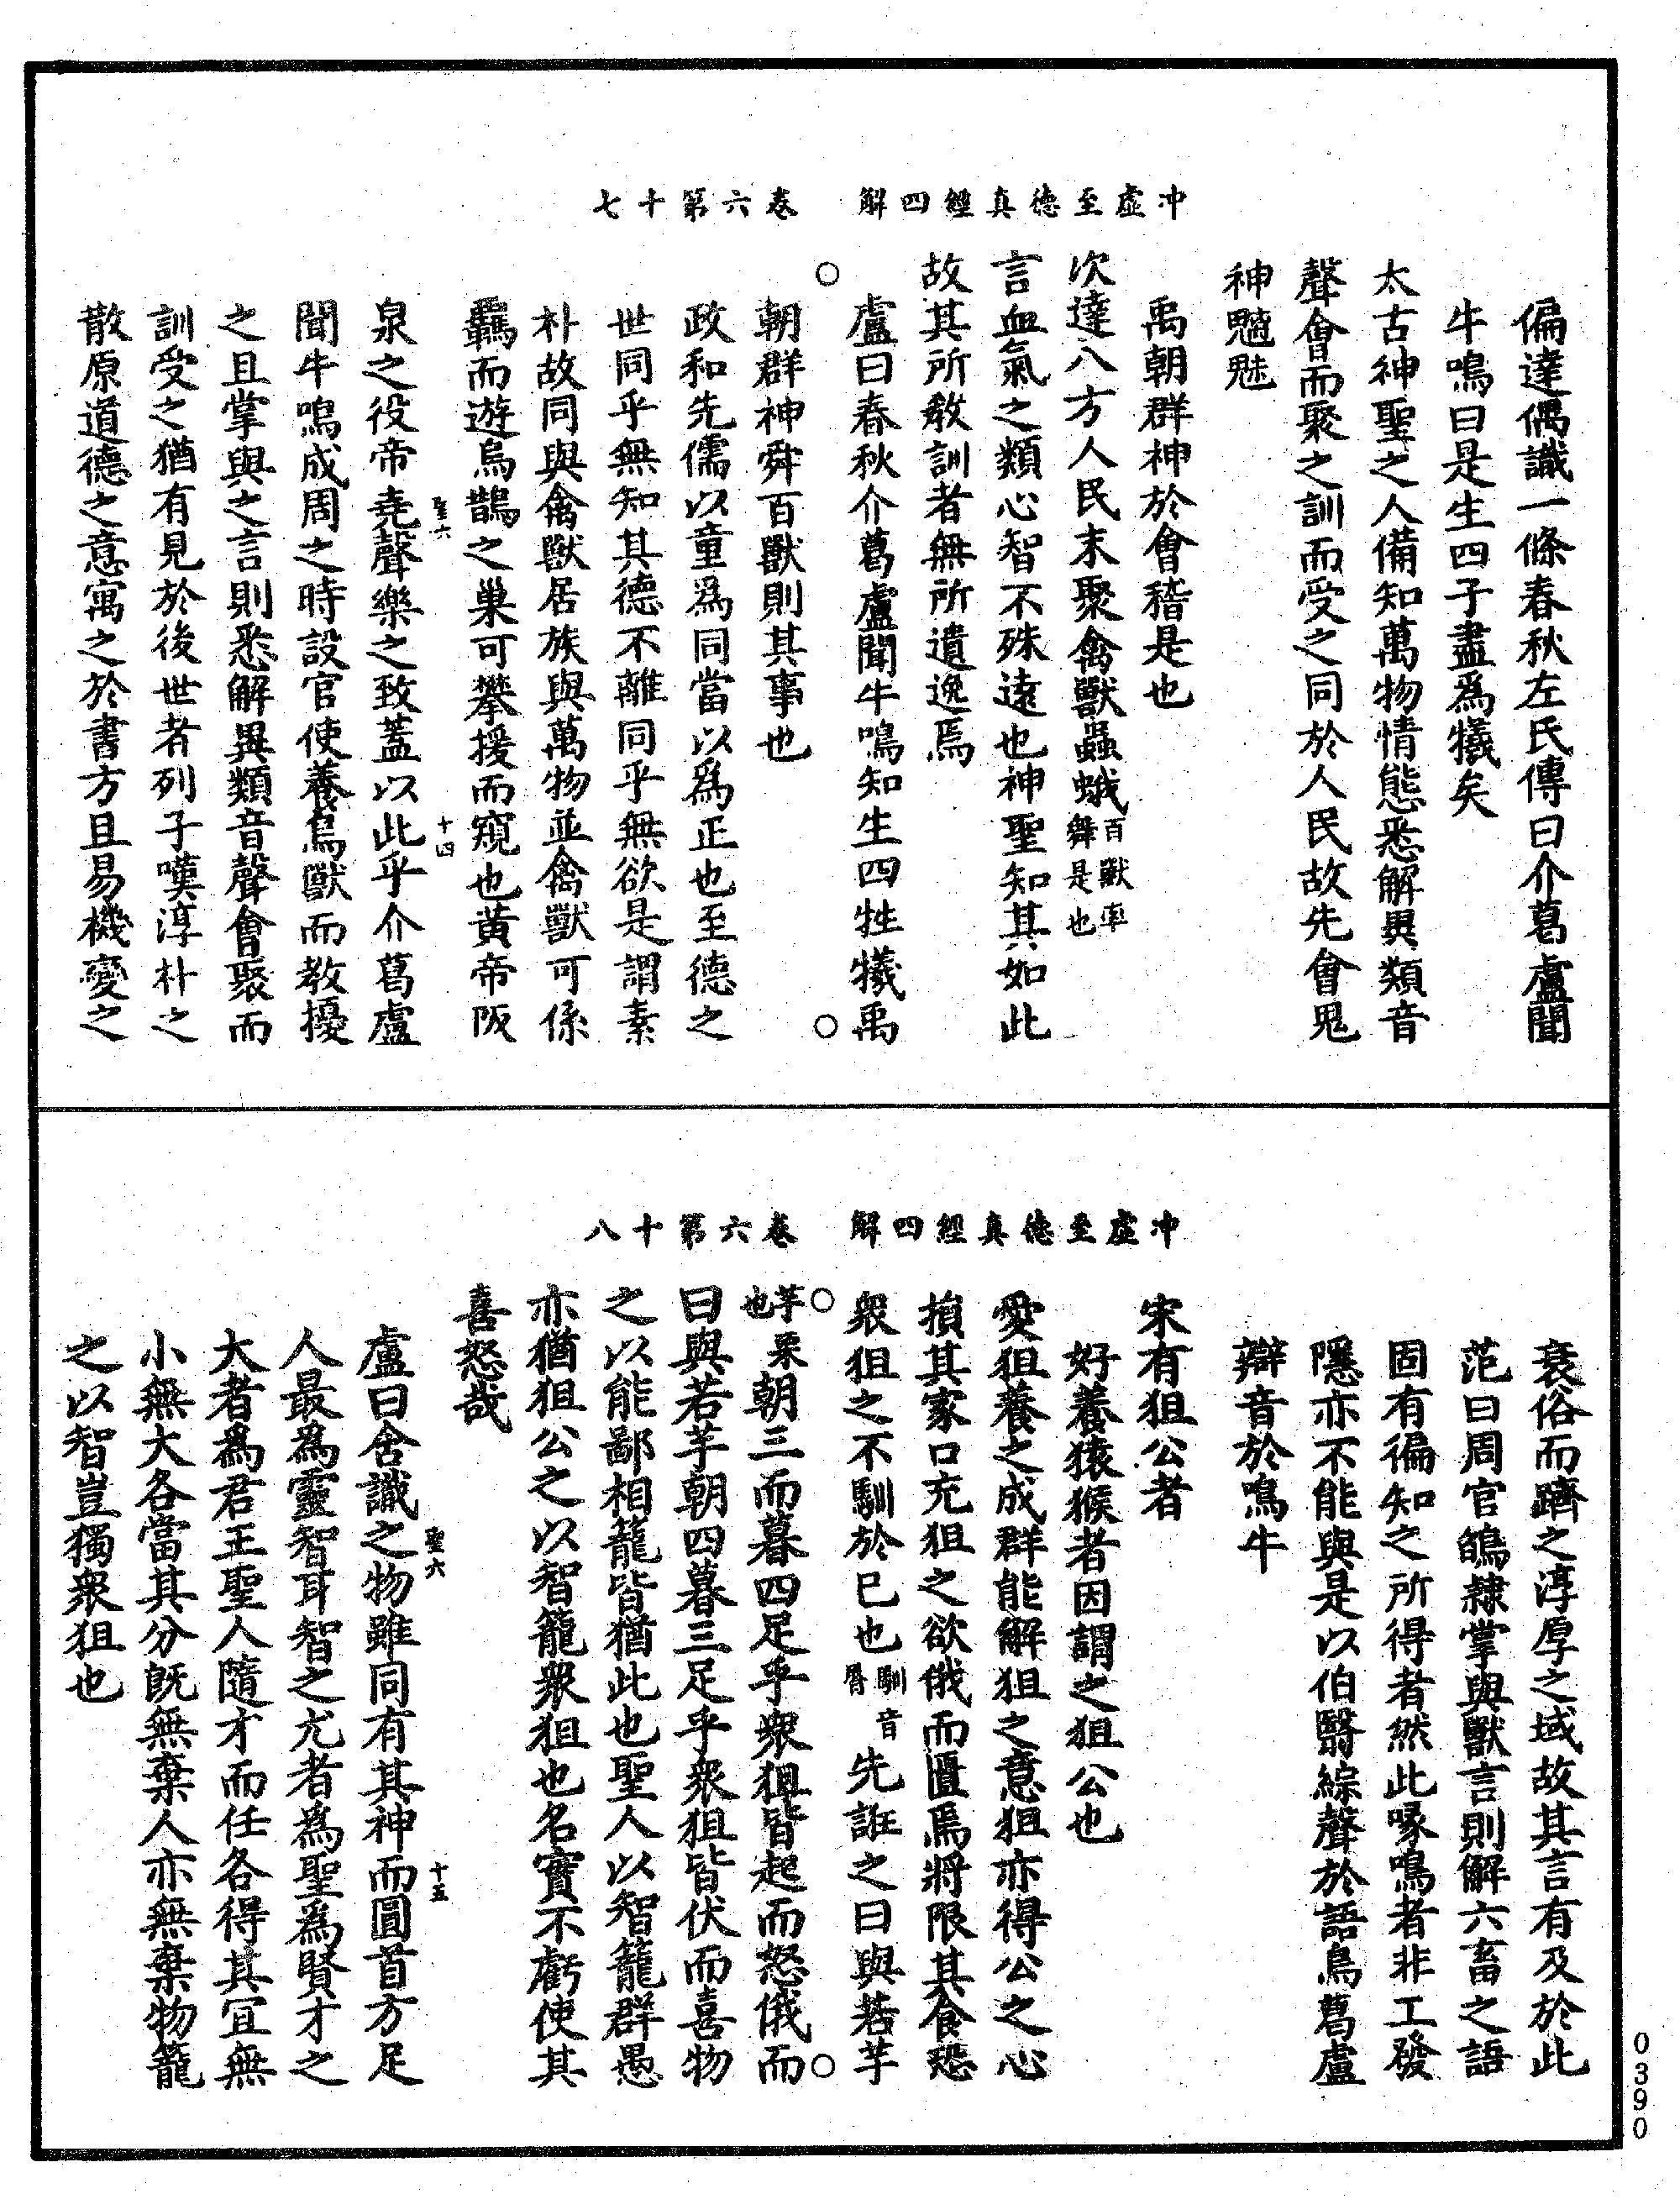 冲虛至德真經四解　卷六第十七
偏達偶識一條春秋左氏傳曰介葛盧聞
牛鳴曰是生四子盡為犧矣
太古神聖之人備知萬物情態悉解異類音
聲會而聚之訓而受之同於人民故先會鬼
神魑魅
禹朝群神於會稽是也
次達八方人民末聚禽獸蟲蛾百獸率舞是也
言血氣之類心智不殊遠也神聖知其如此
故其所教訓者無所遺逸焉
盧曰春秋介葛盧聞牛鳴知生四牲犧禹
朝群神舜百獸則其事也
政和先儒以童為同當以為正也至德之
世同乎無知其德不離同乎無欲是謂素
朴故同與禽獸居族與萬物並禽獸可係
羈而遊烏鵲之巢可攀援而窺也黃帝阪
泉之役帝堯聲樂之致蓋以此乎介葛盧
聖六　十四
聞牛鳴成周之時設官使養鳥獸而教擾
之且掌與之言則悉解異類音聲會聚而
訓受之猶有見於後世者列子嘆淳朴之
散原道德之意寓之於書方且易機變之
冲虛至德真經四解　卷六第十八
衰俗而躋之淳厚之域故其言有及於此
范曰周官鴝隸掌與獸言則解六畜之語
固有徧知之所得者然此喙鳴者非工發
隱亦不能與是以伯翳綜聲於語鳥葛盧
辯音於鳴牛
宋有狙公者
好養猿猴者因謂之狙公也
愛狙養之成群能解狙之意狙亦得公之心
損其家口充狙之欲俄而匱焉將限其食恐
眾狙之不馴於己也馴音脣先誑之曰與若芧
芧栗也朝三而暮四足乎眾狙皆起而怒俄而
曰與若芧朝四暮三足乎眾狙皆伏而喜物
之以能鄙相籠皆猶此也聖人以智籠群愚
亦猶狙公之以智籠眾狙也名實不虧使其
喜怒哉
聖六　十五
盧曰含識之物雖同有其神而圓首方足
人最為靈智耳智之尤者為聖為賢才之
大者為君王聖人隨才而任各得其宜無
小無大各當其分既無棄人亦無棄物籠
之以智豈獨眾狙也
0390